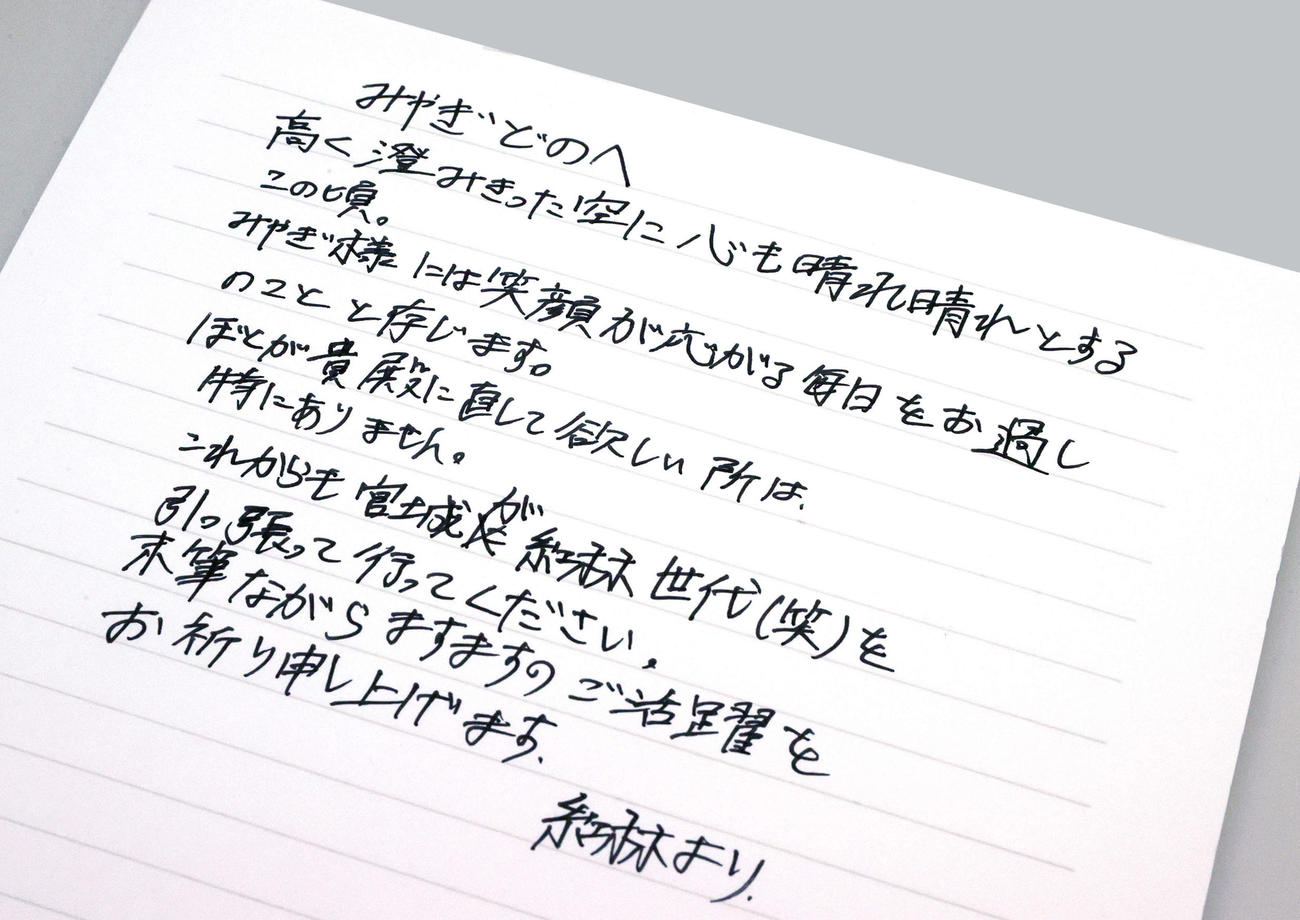 みやぎどのへ
高く澄みきった空に心も晴れ晴れとする
この頃。
みやぎ様には笑顔が広がる毎日をお過し
のことと存じます。
ほとが貴殿に直して欲しい所は、
特にありません。
これからも宮城が紅林世代(笑)を
引っ張って行ってください。
末筆ながらますますのご活躍を
お祈り申し上げます。
紅林より。